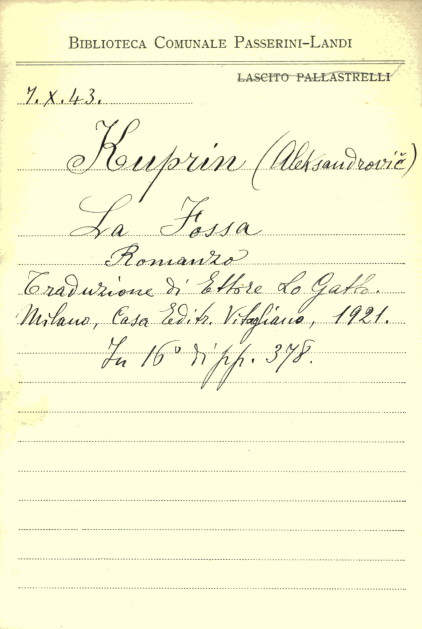 BIBLIOTECA COMUNALE PASSERINI-LANDI
LASCITO PALLASTRELLI
7.X.43.
Kuprin (Aleksandrovič)
La Fossa
Romanzo
Traduzione di Ettore Lo Gatto.
Milano, Casa Editr. Vitagliano, 1921.
In 16° di pp. 378.